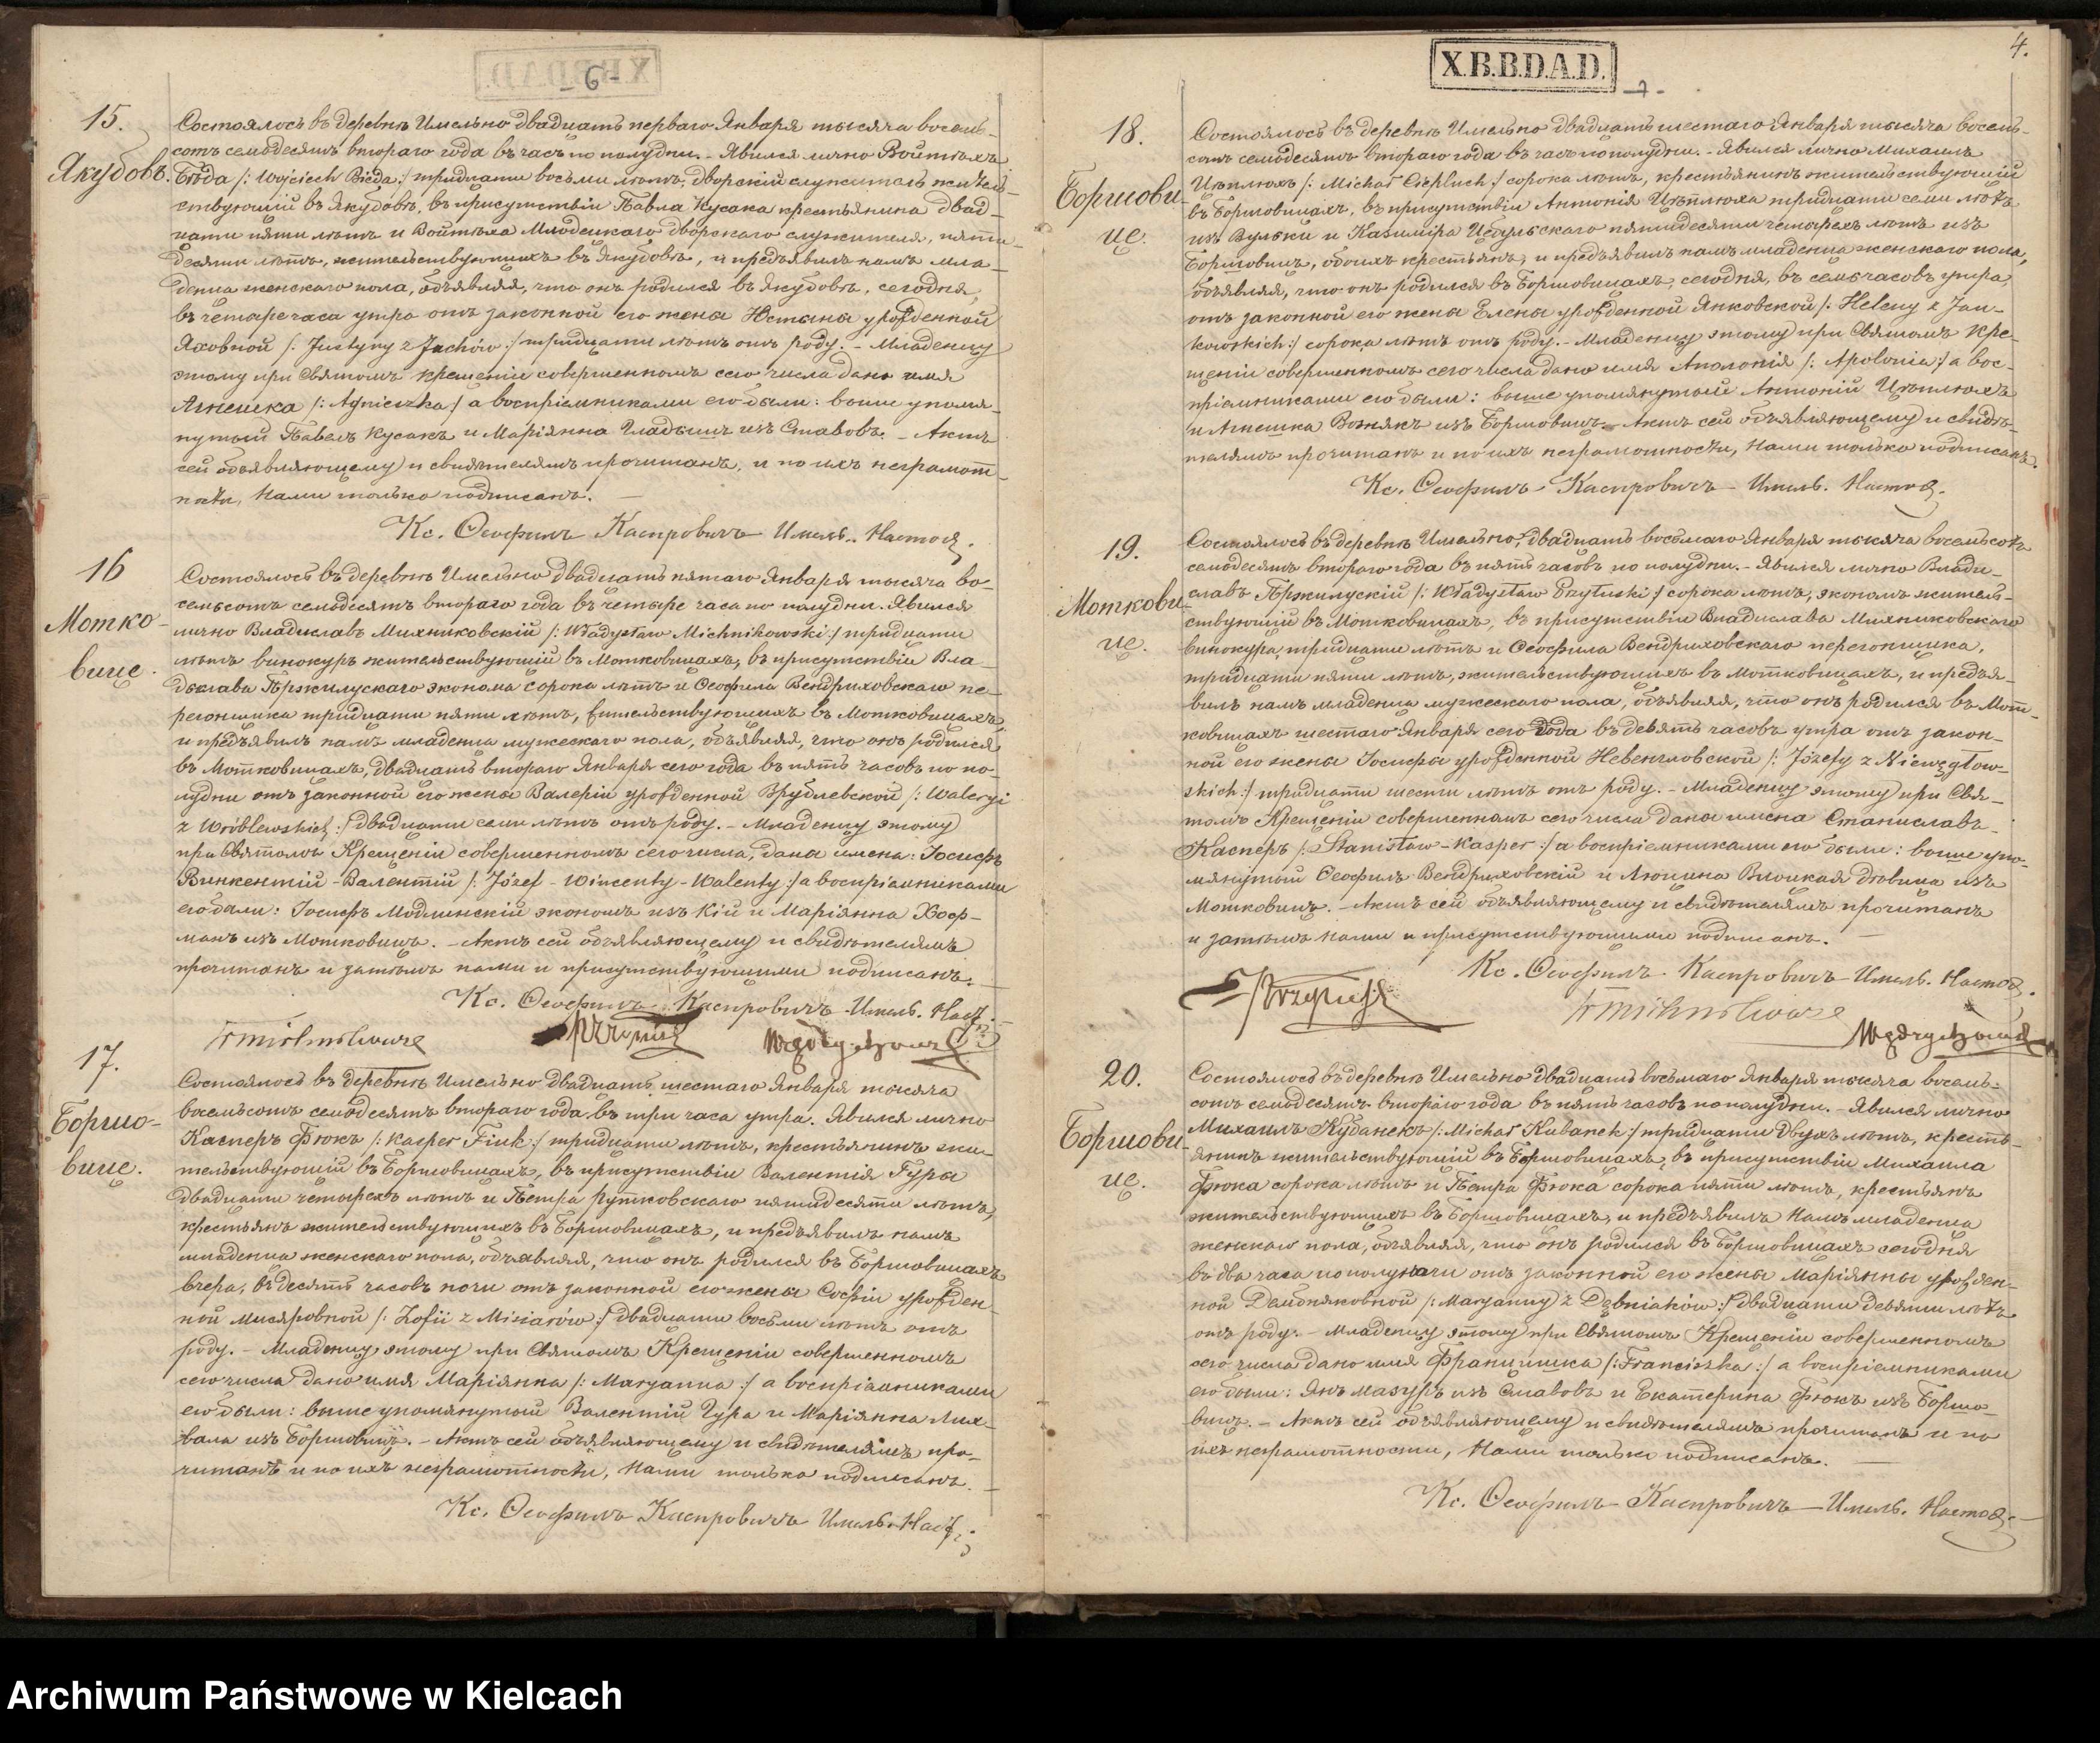 15.
Якубовъ.
Состоялось въ деревнѣ Имельно двадцать перваго Января тысяча восемь-
сотъ семьдесятъ втораго года въ часъ по полудни. - Явился лично Войтѣхъ
Бѣда /: Wojciech Bieda :/ тридцати восьми лѣтъ, дворскій служитель житель-
ствующій въ Якубовѣ, въ присутствіи Павла Кусака крестьянина двад-
цати пяти лѣтъ и Войтѣха Млодецкаго дворскаго служителя, пяти-
десяти лѣтъ, жительствующихъ въ Якубовѣ, и предъявилъ намъ мла-
денца женскаго пола, объявляя, что онъ родился въ Якубовѣ, сегодня,
въ четыре часа утра отъ законной его жены Юстыны урожденной
Яховной /: Justyny z Jachów :/ тридцати лѣтъ отъ роду. - Младенцу
этому при Святомъ крещеніи совершенномъ сего числа дано имя
Агнешка /: Agnieszka :/ а воспріемниками его были: выше упомя-
нутый Павелъ Кусакъ и Маріянна Гладышъ изъ Ставовъ. - Актъ
сей объявляющему и свидѣтелямъ прочитанъ, и по ихъ неграмот-
ности, Нами только подписанъ. -
Кс. Ѳеофилъ Каспровичъ Имель. Настоя.
16
Мотко-
вице.
Состоялось въ деревнѣ Имельно двадцать пятаго Января тысяча во-
семьсотъ семьдесятъ втораго года въ четыре часа по полудни. Явился
лично Владиславъ Михниковскій /: Władysław Michnikowski :/ тридцати
лѣтъ винокуръ жительствующій въ Мотковицахъ, въ присутствіи Вла-
дыслава Пржилускаго эконома сорока лѣтъ и Ѳеофила Вендриховскаго пе-
регонщика тридцати пяти лѣтъ, жительствующихъ въ Мотковицахъ,
и предъявилъ намъ младенца мужескаго пола, объявляя, что онъ родился
въ Мотковицахъ, двадцать втораго Января сего года въ пять часовъ по по-
лудни отъ законной его жены Валеріи урожденной Врублевской /: Waleryi
z Wróblewskich :/ двадцати семи лѣтъ отъ роду. - Младенцу этому
при Святомъ Крещеніи совершенномъ сего числа, даны имена: Іосифъ
Винкентій - Валентій /: Józef - Wincenty - Walenty :/ а воспріемниками
его были: Іосифъ Модлинскій экономъ изъ Кій и Маріянна Хоф-
манъ изъ Мотковицъ. - Актъ сей объявляющему и свидѣтелямъ
прочитанъ и затѣмъ нами и присутствующими подписанъ. -
Кс. Ѳеофилъ Каспровичъ Имель. Наст.
17.
Боршо-
вице.
Состоялось въ деревнѣ Имельно двадцать шестаго Января тысяча
восемьсотъ семьдесятъ втораго года, въ три часа утра. Явился лично
Касперъ Фюкъ /: Kasper Fiuk :/ тридцати лѣтъ, крестьянинъ жи-
тельствующій въ Боршовицахъ, въ присутствіи Валентія Гуры
двадцати четырехъ лѣтъ и Петра Рутковскаго пятидесяти лѣтъ,
крестьянъ жительствующихъ въ Боршовицахъ, и предъявилъ намъ
младенца женскаго пола, объявляя, что онъ родился въ Боршовицахъ
вчера, въ десять часовъ ночи отъ законной его жены Софіи урожден-
ной Мисяровной /: Zofii z Misiarów :/ двадцати восьми лѣтъ отъ
роду. - Младенцу этому при Святомъ Крещеніи совершенномъ
сего числа дано имя Маріянна /: Maryanna :/ а воспріемниками
его были: выше упомянутый Валентій Гура и Маріянна Мих-
вала изъ Боршовицъ. - Актъ сей объявляющему и свидѣтелямъ про-
читанъ и по ихъ неграмотности, Нами только подписанъ. -
Кс. Ѳеофилъ Каспровичъ Имель. Наст.
X.B.B.D.A.D.
- 7 -
4.
18.
Боршови-
це.
Состоялось въ деревнѣ Имельно двадцать шестаго Января тысяча восемь-
сотъ семьдесятъ втораго года въ часъ по полудни. - Явился лично Михаилъ
Цѣплюхъ /: Michał Ciepluch :/ сорока лѣтъ, крестьянинъ жительствующій
въ Боршовицахъ, въ присутствіи Антонія Цѣплюха тридцати семи лѣтъ
изъ Вульки и Казиміра Цебульскаго пятидесяти четырехъ лѣтъ изъ
Боршовицъ, обоихъ крестьянъ, и предъявилъ намъ младенца женскаго пола,
объявляя, что онъ родился въ Боршовицахъ, сегодня, въ семь часовъ утра,
отъ законной его жены Елены урожденной Янковской /: Heleny z Jan-
kowskich :/ сорока лѣтъ отъ роду. - Младенцу этому при Святомъ Кре-
щеніи совершенномъ сего числа дано имя Аполонія /: Apolonia :/ а вос-
пріемниками его были: выше упомянутый Антоній Цѣплюхъ
и Агнешка Вознякъ изъ Боршовицъ. - Актъ сей объявляющему и свидѣ-
телямъ прочитанъ и по ихъ неграмотности, Нами только подписанъ.
Кс. Ѳеофилъ Каспровичъ Имель. Настоя.
19.
Моткови-
це.
Состоялось въ деревнѣ Имельно, двадцать восьмаго Января тысяча восемьсотъ
семьдесятъ втораго года въ пять часовъ по полудни. - Явился лично Влади-
славъ Пржилускій /: Władysław Przyłuski :/ сорока лѣтъ, экономъ житель-
ствующій въ Мотковицахъ, въ присутствіи Владислава Михниковскаго
винокура, тридцати лѣтъ и Ѳеофила Вендриховскаго перегонщика,
тридцати пяти лѣтъ, жительствующихъ въ Мотковицахъ, и предъя-
вилъ намъ младенца мужескаго пола, объявляя, что онъ родился въ Мот-
ковицахъ шестаго Января сего года въ девять часовъ утра отъ закон-
ной его жены Іосифы урожденной Невенгловской /: Józefy z Niewęgłow-
skich :/ тридцати шести лѣтъ отъ роду. - Младенцу этому при Свя-
томъ Крещеніи совершенномъ сего числа даны имена Станиславъ-
Касперъ /: Stanisław - Kasper :/ а воспріемниками его были: выше упо-
мянутый Ѳеофилъ Вендриховскій и Люцина Влоцкая дѣвица изъ
Мотковицъ. - Актъ сей объявляющему и свидѣтелямъ прочитанъ
и затѣмъ нами и присутствующими подписанъ. -
Кс. Ѳеофилъ Каспровичъ Имель. Настоя.
20.
Боршови-
це.
Состоялось въ деревнѣ Имельно двадцать восьмаго Января тысяча восемь-
сотъ семьдесятъ втораго года въ пять часовъ пополудни. - Явился лично
Михаилъ Кубанекъ /: Michał Kubanek :/ тридцати двухъ лѣтъ, кресть-
янинъ жительствующій въ Боршовицахъ, въ присутствіи Михаила
Фюка сорока лѣтъ и Петра Фюка сорока пяти лѣтъ, крестьянъ
жительствующихъ въ Боршовицахъ, и предъявилъ намъ младенца
женскаго пола, объявляя, что онъ родился въ Боршовицахъ сегодня
въ два часа по полуночи отъ законной его жены Маріянны урожден-
ной Дембняковной /: Maryanny z Dębniaków :/ двадцати девяти лѣтъ
отъ роду. - Младенцу этому при Святомъ Крещеніи совершенномъ
сего числа дано имя Францишка /: Franciszka :/ а воспріемниками
его были: Янъ Мазуръ изъ Ставовъ и Екатерина Фюкъ изъ Боршо-
вицъ. - Актъ сей объявляющему и свидѣтелямъ прочитанъ и по
ихъ неграмотности, Нами только подписанъ. -
Кс. Ѳеофилъ Каспровичъ Имель. Настоя.
Archiwum Państwowe w Kielcach